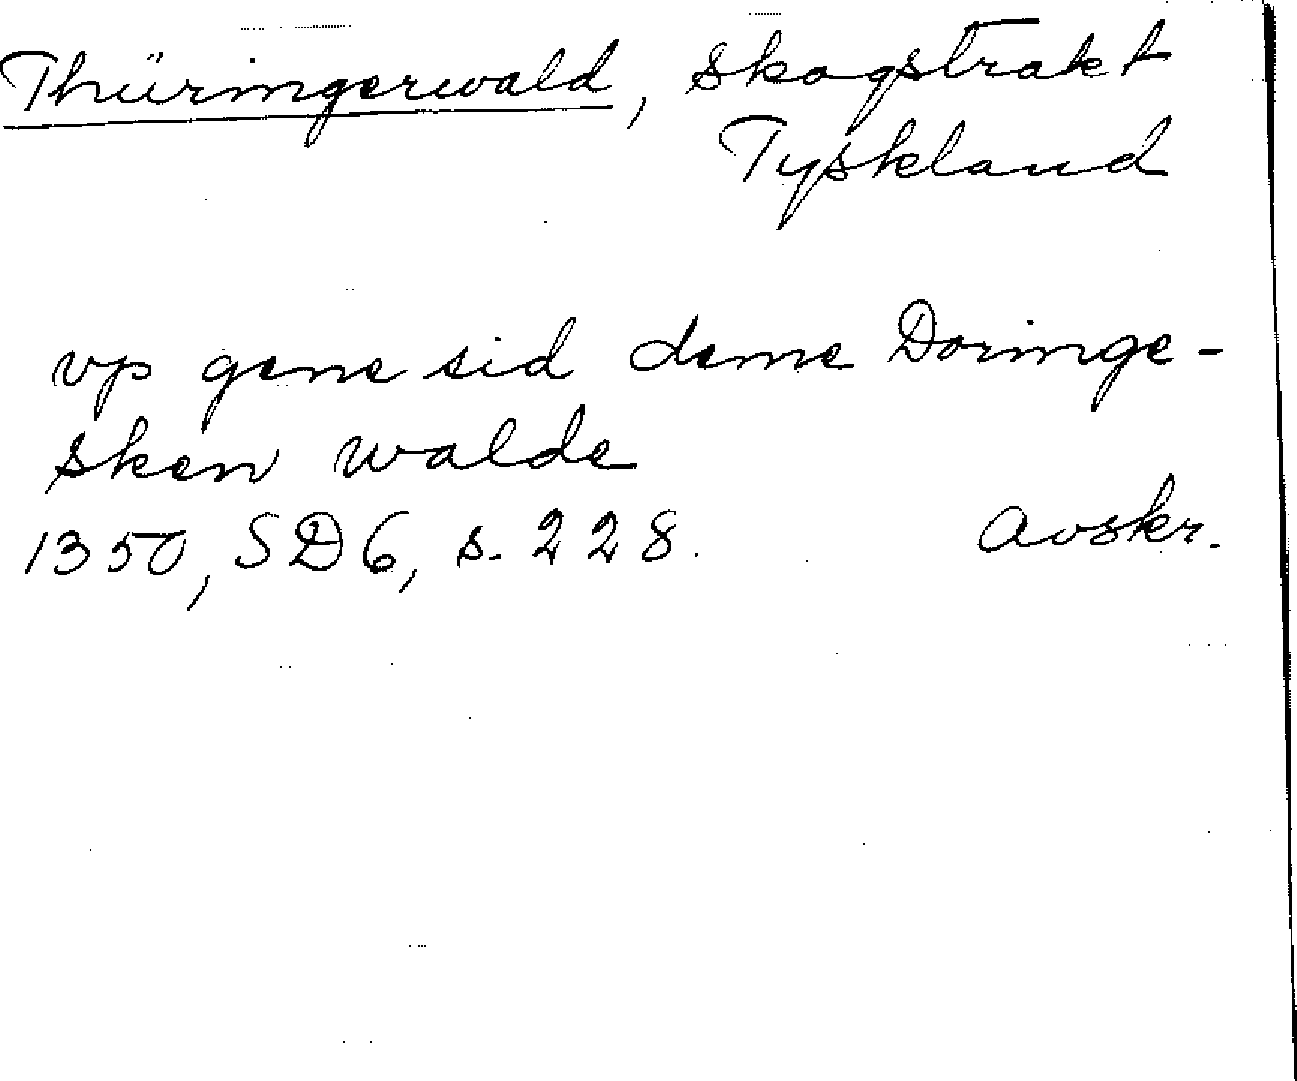 Thüringerwald, skogstrakt
Tyskland
vp gene sid deme Doringe-
sken walde
1350, SD6, s. 228. Avskr.